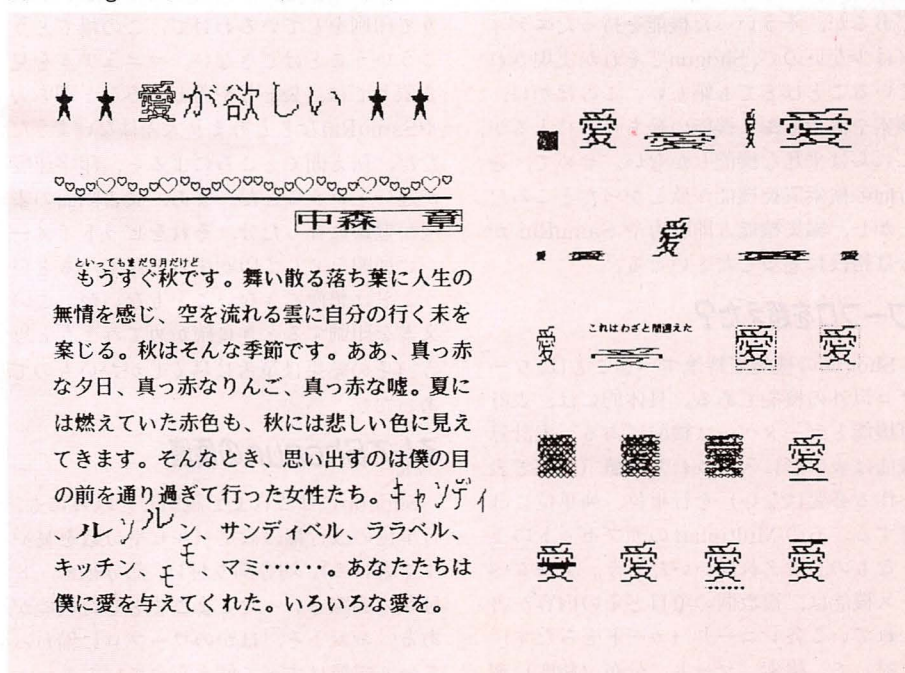 ★ ★ 愛が欲しい ★ ★
中森 章
といってもまだ9月だけど
もうすぐ秋です。舞い散る落ち葉に人生の
無情を感じ、空を流れる雲に自分の行く末を
案じる。秋はそんな季節です。ああ、真っ赤
な夕日、真っ赤なりんご、真っ赤な嘘。夏に
は燃えていた赤色も、秋には悲しい色に見え
てきます。そんなとき、思い出すのは僕の目
の前を通り過ぎて行った女性たち。キャンディ
ルンルン、サンディベル ララベル、
キッチン モモ、マミ……。あなたたちは
僕に愛を与えてくれた。いろいろな愛を。
愛 愛 愛
愛
これはわざと間違えた
愛 愛 愛 愛
愛 愛 愛 愛
愛 愛 愛 愛